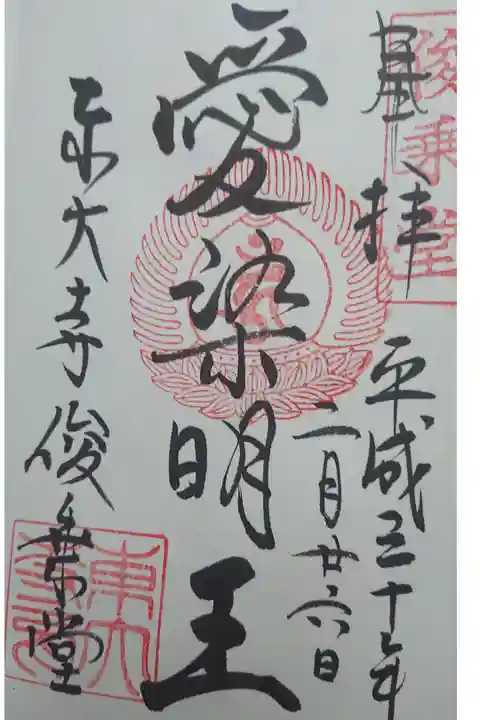 俊乗堂
奉拝
平成三十年
二月廿六日
愛染明王
東大寺俊乗堂